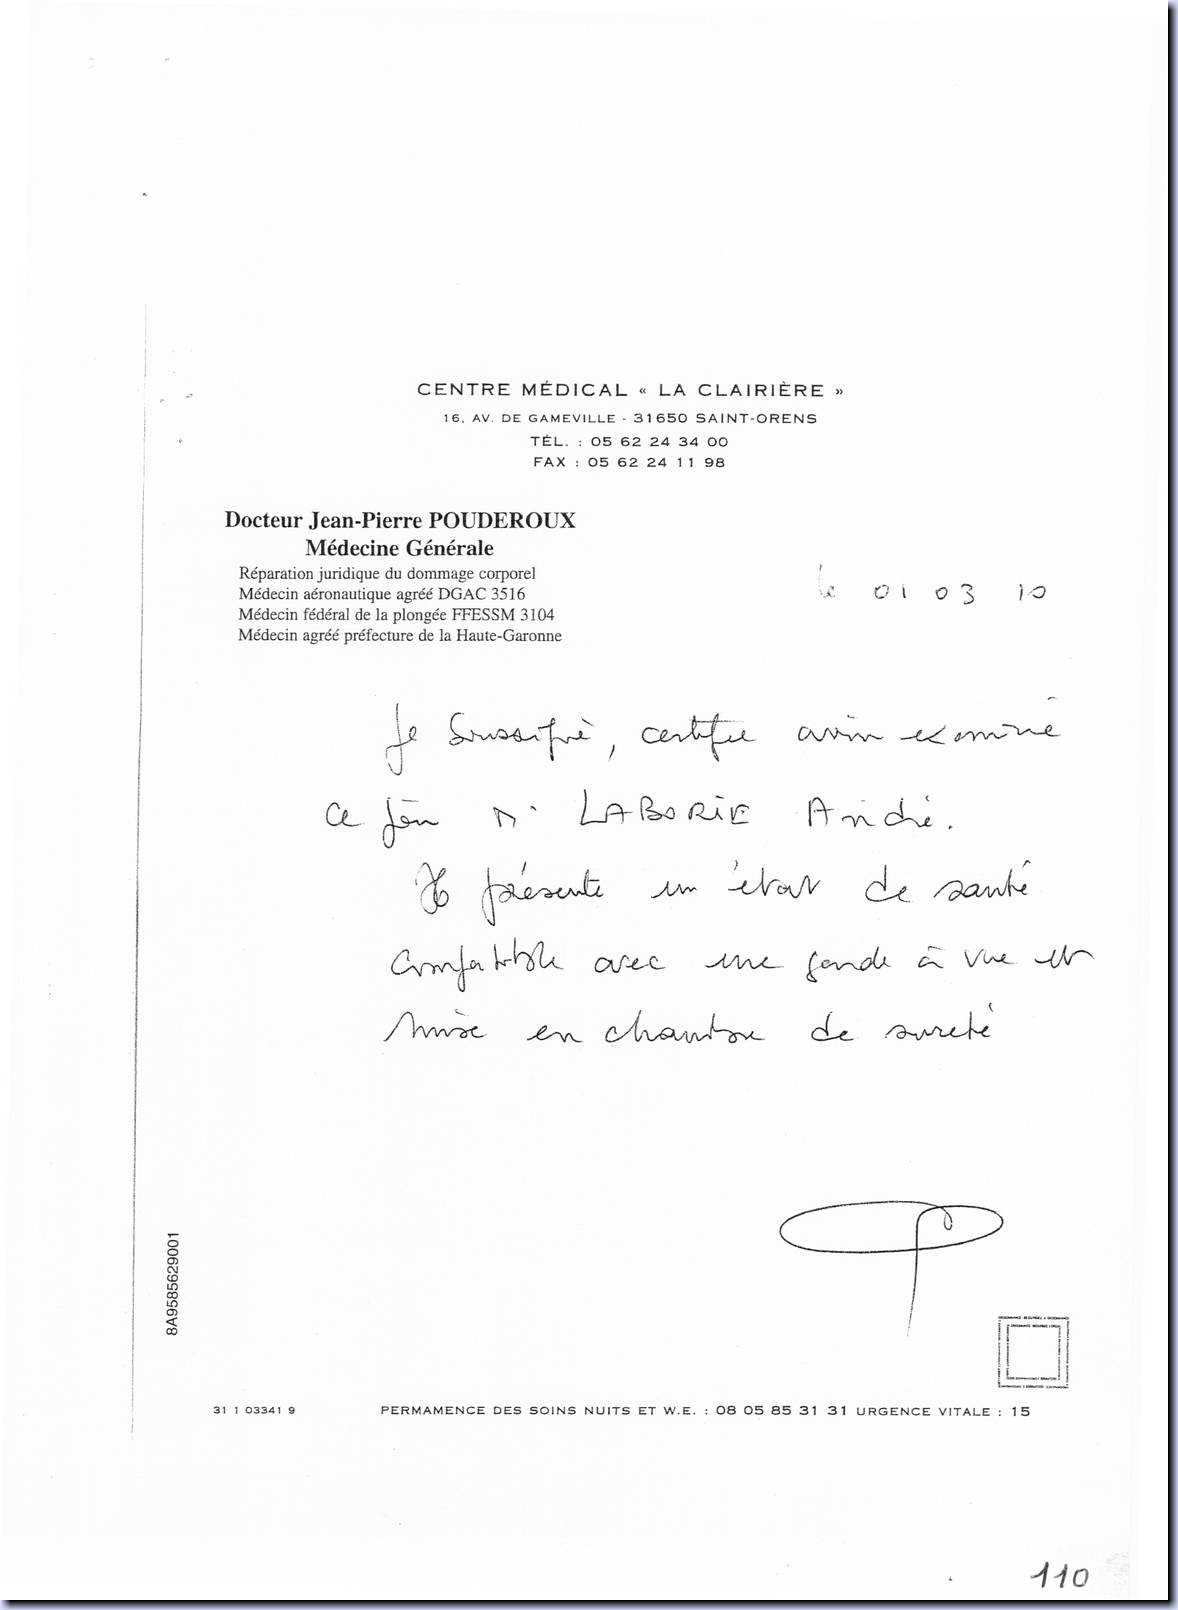 CENTRE MÉDICAL « LA CLAIRIÈRE »
16, AV. DE GAMEVILLE - 31650 SAINT-ORENS
TÉL. : 05 62 24 34 00
FAX : 05 62 24 11 98
Docteur Jean-Pierre POUDEROUX
Médecine Générale
Réparation juridique du dommage corporel
Médecin aéronautique agréé DGAC 3516
Médecin fédéral de la plongée FFESSM 3104
Médecin agréé préfecture de la Haute-Garonne
le 01 03 10
Je soussigné, certifie avoir examiné
ce jour Mr LABORIE André.
Il présente un état de santé
compatible avec une garde à vue et
mise en chambre de sureté
8A9585629001
31 1 03341 9
PERMAMENCE DES SOINS NUITS ET W.E. : 08 05 85 31 31 URGENCE VITALE : 15
110